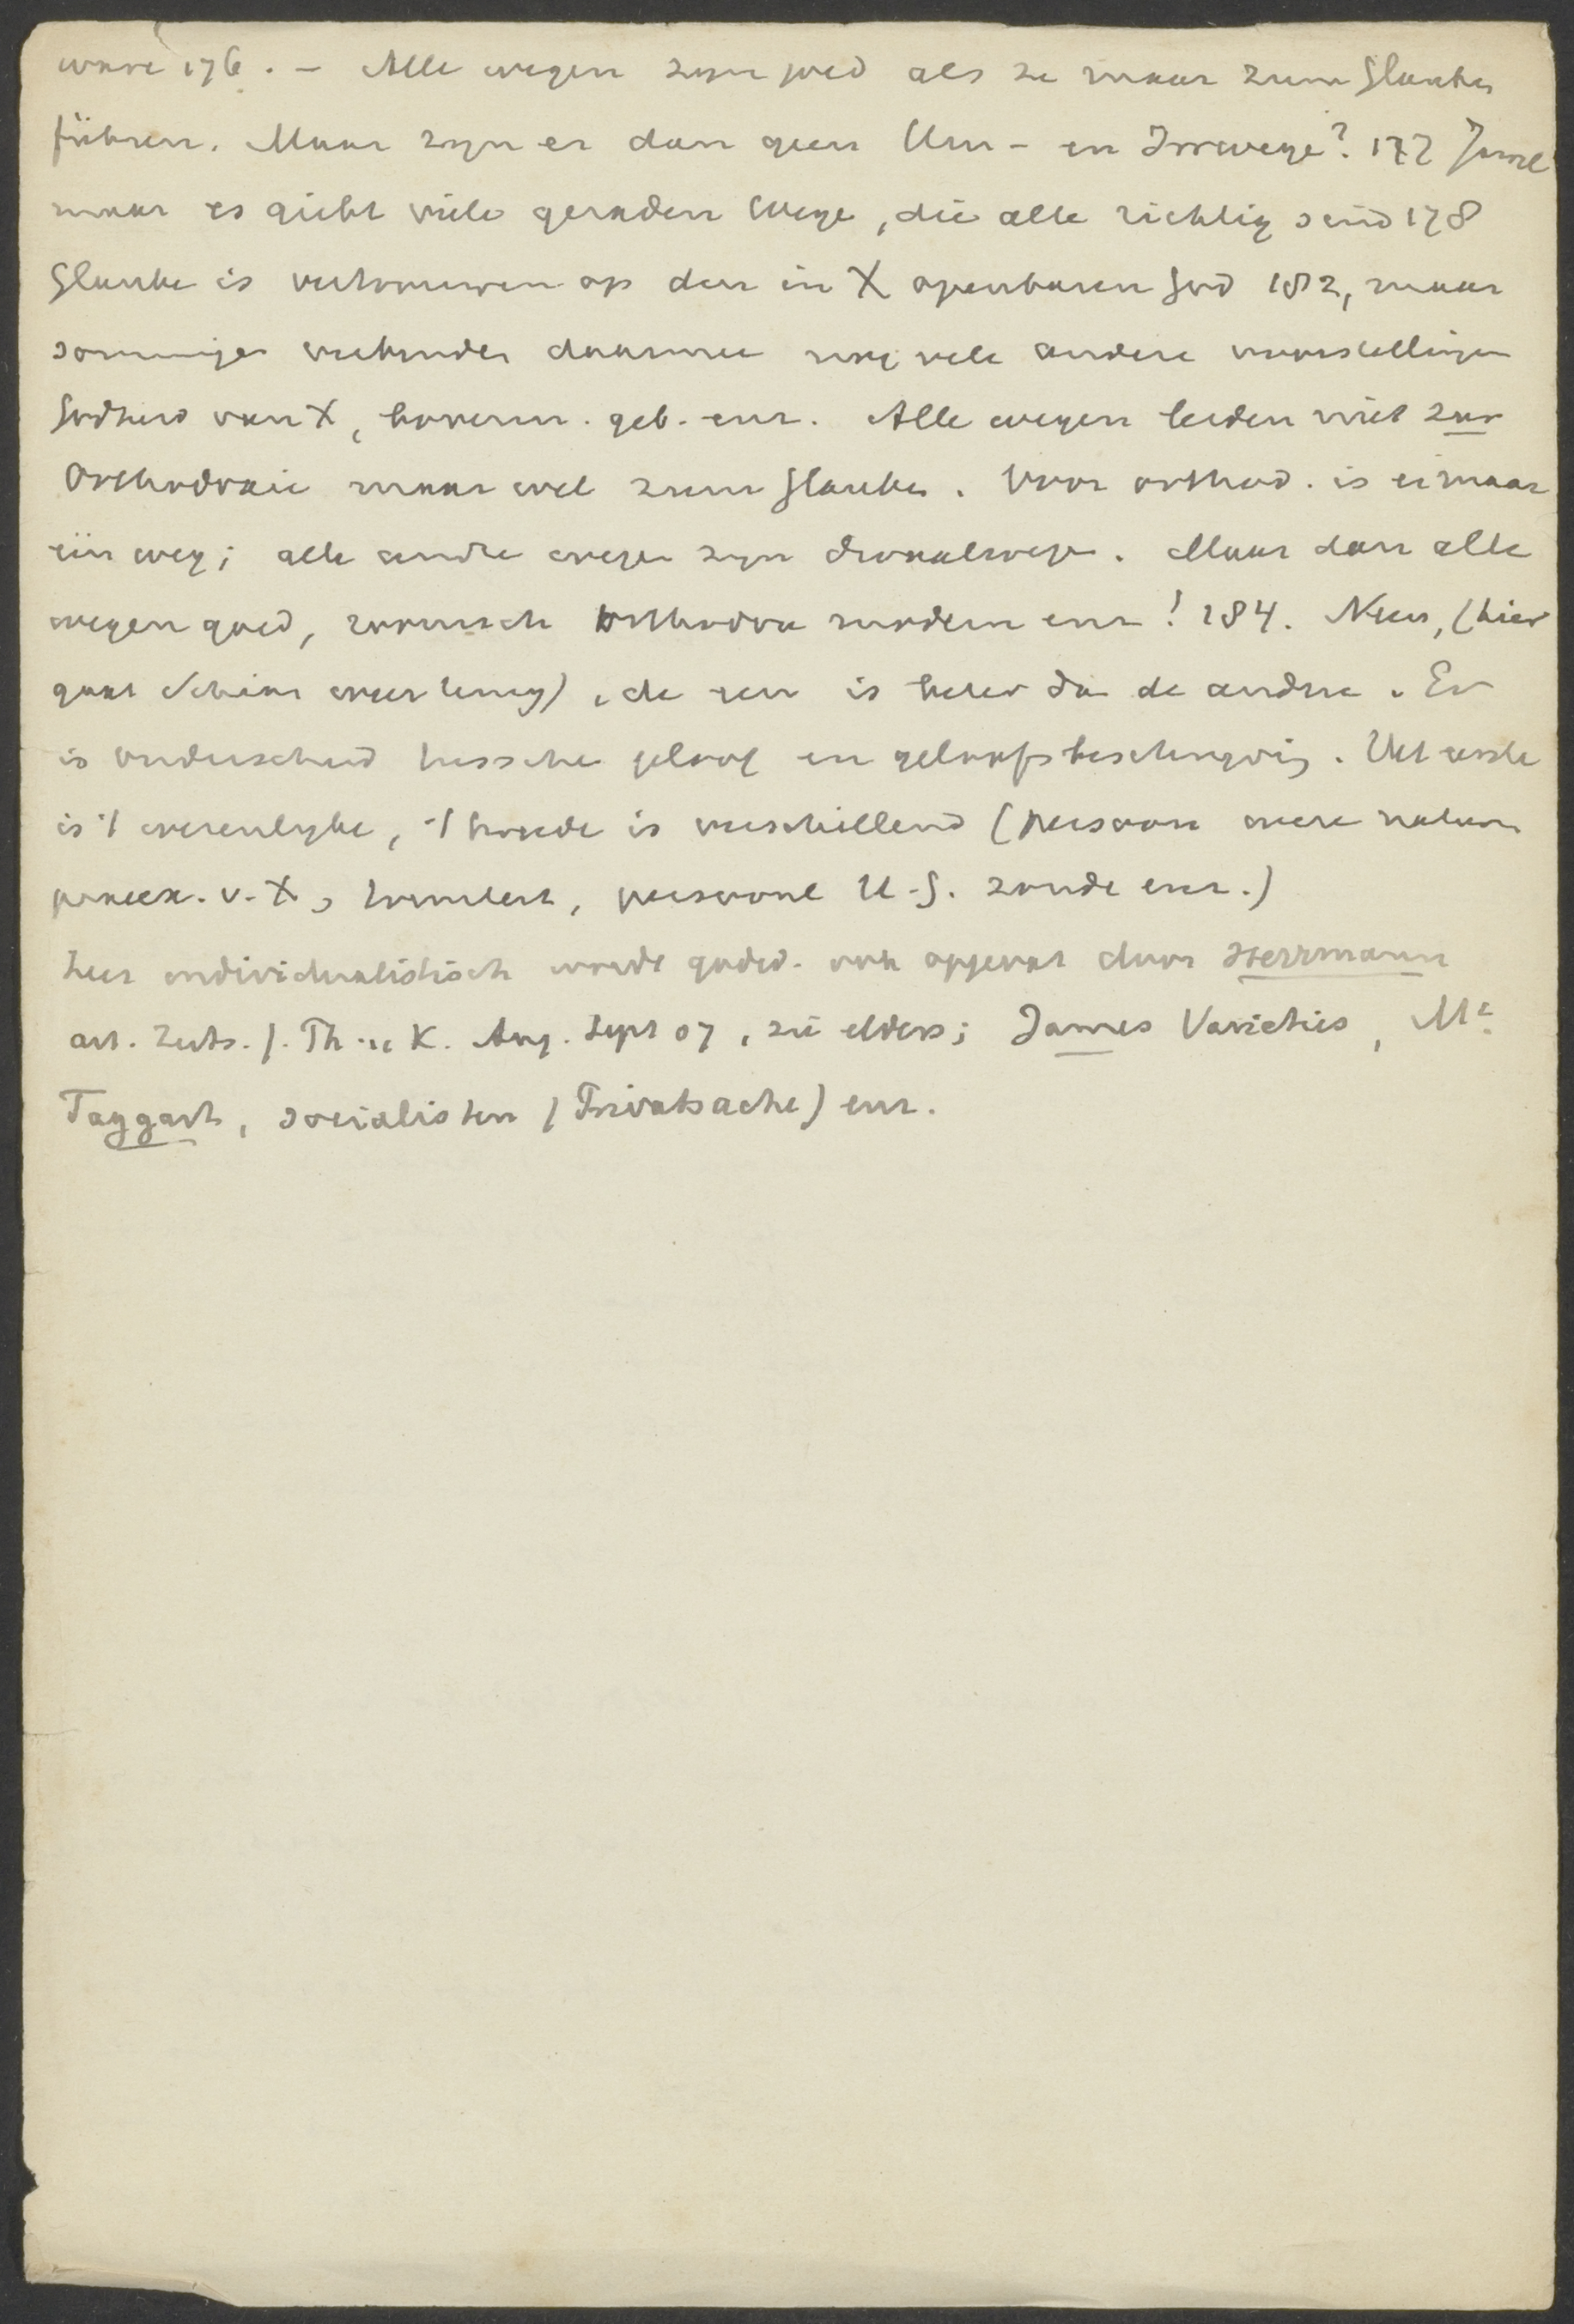 ware 176. – Alle wegen zijn goed als ze maar zum Glauben
führen. Maar zijn er dan geen Um- en Irrwege? 177 Jawel
maar es giebt viele geraden Wege, die alle richtig sind 178
Glaube is vertrouwen op den in X openbaren God 182, maar
sommigen verbinden daarmee nog vele andere voorstellingen
Godheid van X, bovenn. geb. enz. Alle wegen leiden niet zur
Orthodoxie maar wel zum Glauben. Voor orthod. is er maar
één weg; alle andre wegen zijn dwaalwegen. Maar dan alle
wegen goed, roomsch orthodox modern enz! 184. Neen, (hier
gaat Schian weer terug), de een is beter dan de andere. Er
is onderscheid tussche geloof en geloofsbeschrijving. Het eerste
is 't wezenlijke, 't tweede is verschillend (persoon twee naturen
praeex. v. X, triniteit, persoonl H.G. zonde enz.)
Zeer individualistisch wordt godsd. ook opgevat door Herrmann
art. Zeits. f. Th. u K. Aug. Sept 07, zie elders; James Varieties, Mc
Taggart, socialisten (Privatsache) enz.